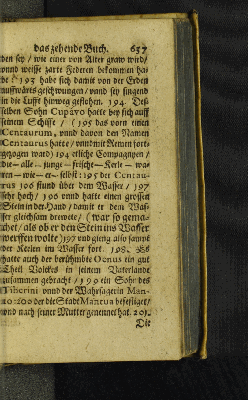 das zehende Buch. 637
den sey / wie einer von Alter graw wird/
vnnd weisse zarte Federen bekommen ha-
be : 193 habe sich damit von der Erden
auffwärts geschwungen / vnnd sey singend
in die Lufft hinweg geflohen. 194. Des-
selben Sohn Cupavo hatte bey sich auff
seinem Schiffe / (195 das von einen
Centaurum, vnnd davon den Namen
Centaurus hatte / vnnd mit Remen fort-
gezogen ward) 194 etliche Compagnyen /
die — alle — junge — frische — Kerle — wa-
ren — wie — er — selbst : 195 der Centau-
rus 196 stund über dem Wasser / 197
sehr hoch / 196 vnnd hatte einen grossen
Stein in der Hand / damit er dem Was-
ser gleichsam drewete / (war so gema-
chet / als ob er den Stein ins Wasser
werffen wolte) 197 vnd gieng also sampt
der Keilen im Wasser fort. 198. Es
hatte auch der berühmbte Ocnus ein gut
Theil Volckes in seinem Vaterlande
zusammen gebracht / 199 ein Sohn des
Tiberini vnnd der Wahrsagerin Man-
to: 200 der die Stadt Mantua befestiget /
vnd nach seiner Mutter genennet hat. 201.
Die